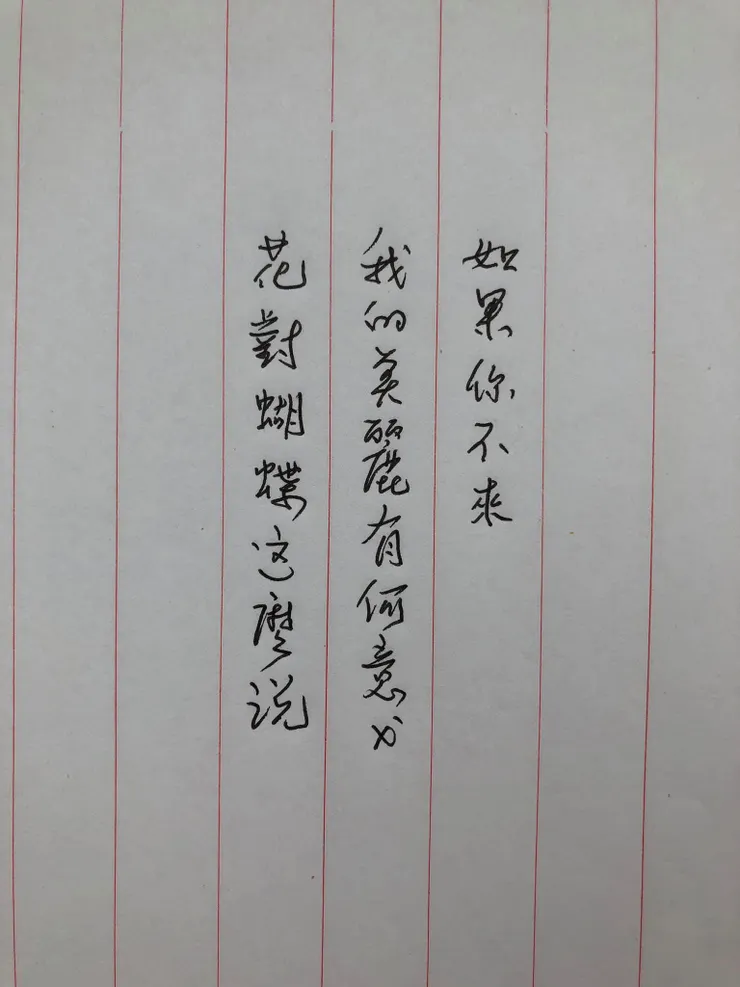 如果你不來
我的美麗有何意义
花對蝴蝶这麼说